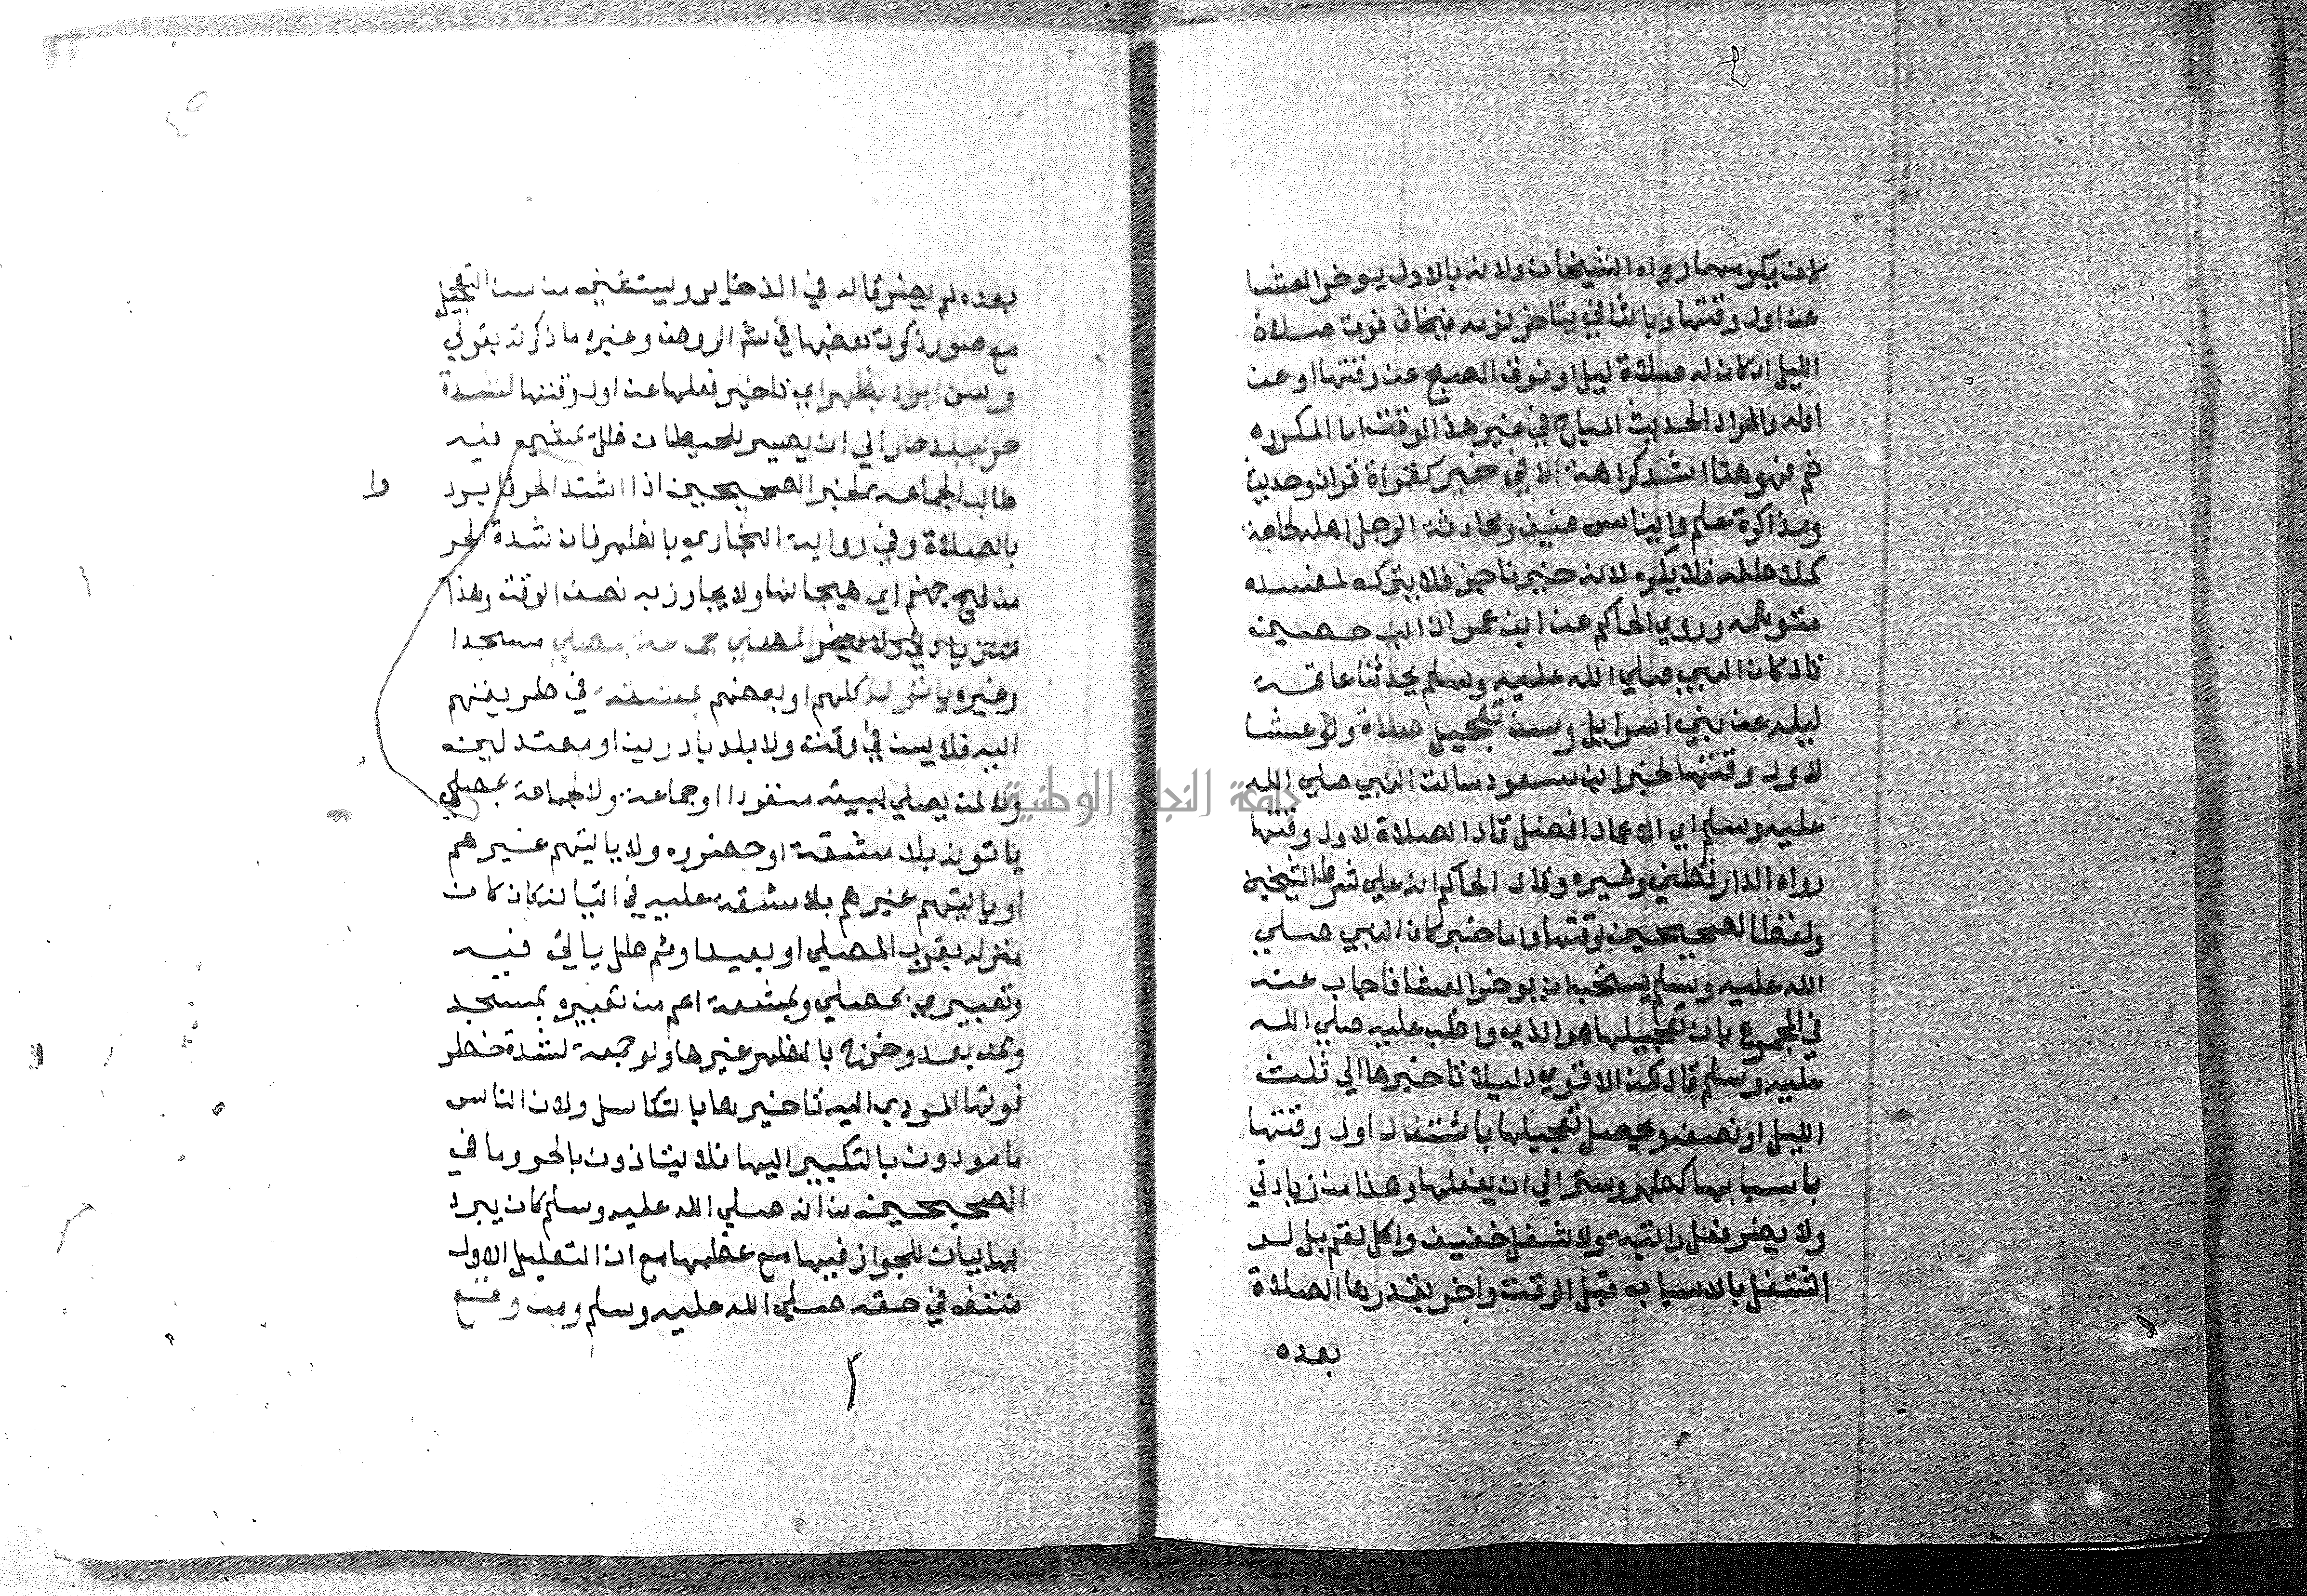 كان يكرههما رواه الشيخان ولانه بالاول يوخر العشا
عن اول وقتها وبالثاني يتاخر نومه فيخاف فوت صلاة
الليل ان كان له صلاة ليل او فوت الصبح عن وقتها او عن
اوله والمراد الحديث المباح في غير هذا الوقت اما المكروه
ثم فهو هنا اشد كراهة الا في خير كقراة قران وحديث
ومذاكرة علم وايناس ضيف ومحادثة الرجل اهله لحاجة
كملاطفة فلا يكره لانه خير ناجز فلا يترك لمفسدة
متوهمة وروي الحاكم عن عمران ابن حصين
قال كان النبي صلي الله عليه وسلم يحدثنا عامة
ليله عن بني اسرايل وسن تعجيل صلاة ولو عشا
لاول وقتها لخبر ابن مسعود سالت النبي صلي الله
عليه وسلم اي الاعمال افضل قال الصلاة لاول وقتها
رواه الدارقطني وغيره وقال الحاكم انه علي شرط الشيخين
ولفظ الصحيحين لوقتها واما خبر كان النبي صلي
الله عليه وسلم يستحب ان يوخر العشا فاجاب عنه
في المجموع بان تعجيلها هو الذي واظب عليه صلي الله
عليه وسلم قال لكن الاقوي دليلا تاخيرها الي ثلث
الليل او نصفه ويحصل تعجيلها باشتغال اول وقتها
باسبابها كطهر وستر الي ان يفعلها وهذا من زيادتي
ولا يضر فعل راتبة ولا شغل خفيف واكل لقم بل لو
اشتغل بالاسباب قبل الوقت واخر بقدرها الصلاة
بعده
٤٥
بعده لم يضر قاله في الذخاير ويستثني من سن التعجيل
مع صور ذكرت بعضها في شرح الروض وغيره ما ذكرته بقولي
وسن ابراد بظهر اي تاخير فعلها عن اول وقتها لشدة
حر ببلد حار الي ان يصير للحيطان ظل يمشي فيه
طالب الجماعة لخبر الصحيحين اذا اشتد الحر فابرد
وا
بالصلاة وفي رواية البخاري بالظهر فان شدة الحر
من فيح جهنم اي هيجانها ولا يجاوز به نصف الوقت وهذا
لمصلي جماعة بمصلي مسجدا
وغيره ياتونه كلهم او بعضهم بمشقة في طريقهم
اليه فلا يسن في وقت ولا بلد باردين او معتدلين
ولا لمن يصلي ببيته منفردا او جماعة ولا لجماعة بمصلي
ياتونه بلا مشقة او حضوره ولا ياتيهم غيرهم
او ياتيهم غيرهم بلا مشقة عليه في اتيانه كان كان
منزله بقرب المصلي او بعيدا وثم ظل ياتي فيه
وتعبيري بمصلي وبمشقة اعم من تعبيره بمسجد
ومن بعد وخرج بالظهر غيرها ولو جمعة لشدة خطر
فوتها المودي اليه تاخيرها بالتكاسل ولان الناس
مامورون بالتكبير اليها فلا يتاذون بالحر وما في
الصحيحين من انه صلي الله عليه وسلم كان يبرد
بها بيان للجواز فيها مع عظمها مع ان التعليل الاول
منتف في حقه صلي الله عليه وسلم ومن وقع
جامعة النجاح الوطنية